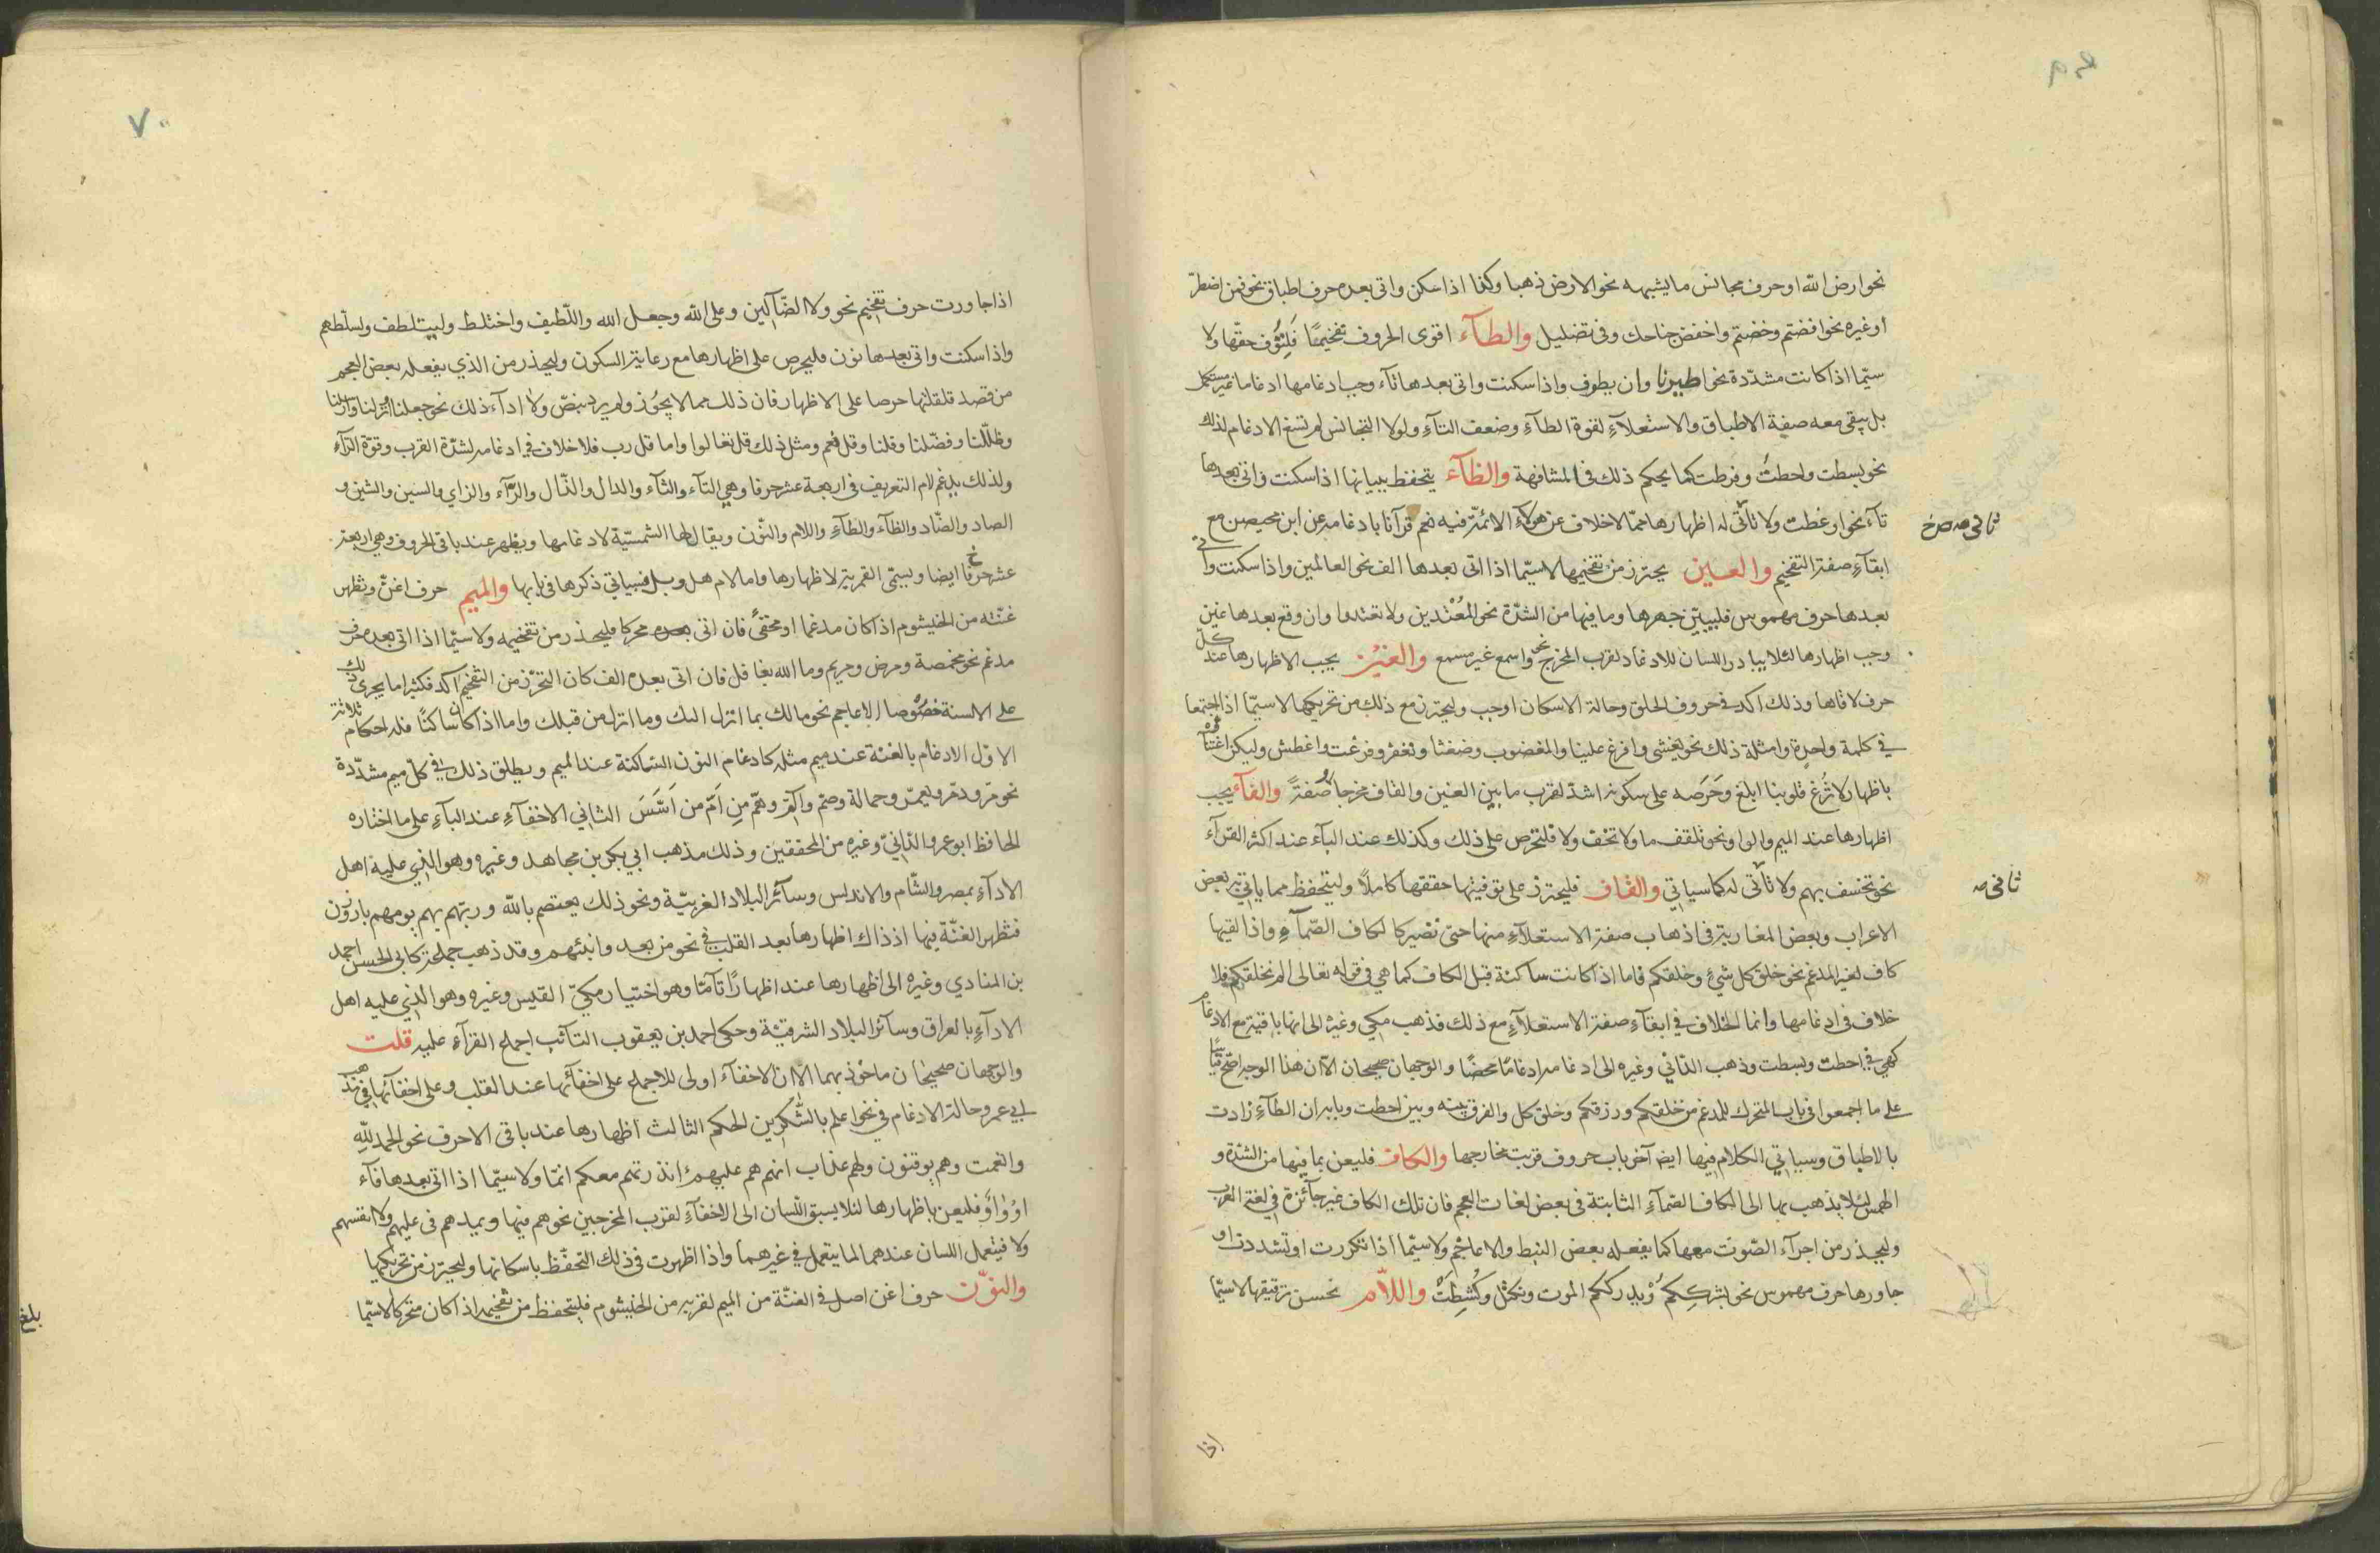 نحو ارض الله او حرف مجانس ما يشبهه نحو الارض ذهبا وكذا اذا سكن واتى بعده حرف اطباق نحو فمن اضطرّ
او غيره نحو افضتم وخضتم واخفض جناحك وفى تضليل والطآء اقوى الحروف تفخيمًا فَلِتُوَّف حقّها ولا
سيّما اذا كانت مشدّدة نحو اطيرنا وان يطوف واذا سكنت واتى بعدها تآء وجب ادغامها ادغاما غير مستكمل
بل يبقى معه صفة الاطباق والاستعلآءِ لقوة الطآءِ وضعف التآءِ ولولا التجانس لم تسغ الادغام لذلك
نحو بسطت واحطتُ وفرطت كما يحكم ذلك فى المشافهة والظآء يتحفظ ببيانها اذا سكنت واتى بعدها
تآء نحو اوعظت ولا ثانى له اظهارها ممّا لا خلاف عن هولآء الائمّة فيه نعم قرآنا بادغامه عن ابن محيصن مع
ثانى صح
ابقآءِ صفة التفخيم والعين يحترز من تفخيمها لا سيّما اذا اتى بعدها الف نحو العالمين واذا سكنت واتى
بعدها حرف مهموس فليبيّن جهرها وما فيها من الشدّة نحو المُعْتَدين ولا تعتدوا وان وقع بعدها غين
وجب اظهارها لئلا يبادر اللسان للادغام لقرب المخرج نحو واسمع غير مسمع والغين يجب الاظهارها عند كلّ
حرف لاقاها وذلك اكد فى حروف الحلق وحالة الاسكان اوجب وليحترز مع ذلك من تحريكها لا سيّما اذا اجتمعا
فى كلمة واحدة وامثلة ذلك نحو يغشى وافرغ علينا والمغضوب وضغثا وتغفر وفرغت واغطش وليكن اعتناؤه
باظهار لا تُزغ قلوبنا ابلغ وحَرَصه على سكونه اشدّ لقرب ما بين الغين والقاف مخرجا وصفةً والفآء يجب
اظهارها عند الميم والواو نحو تلقف ما ولا تخف ولا فلتحرص على ذلك وكذلك عند البآء عند اكثر القرآء
نحو تخسف بهم ولا ثانى له كما سياتي والقاف فليحترز على توفيتها حققها كاملاً وليتحفظ مما ياتى به بعض
ثانى
الاعراب وبعض المغاربة فى اذهاب صفة الاستعلآءِ منها حتى تصير كا لكاف الصّمآءِ واذا لقيها
كاف لغير المدغم نحو خلق كل شيءٍ وخلقكم فاما اذا كانت ساكنة قبل الكاف كما هي فى قوله تعالى الم نخلقكم فلا
خلاف فى ادغامها وانما الخلاف فى ابقآءِ صفة الاستعلآءِ مع ذلك فذهب مكي وغيره الى انها باقية مع الادغام
كهي فى احطت وبسطت وذهب الدّاني وغيره الى ادغامه ادغامًا محضًا والوجهان صحيحان الّا ان هذا الوجه اصّح قياسًا
على ما اجمعوا فى باب المتحرك للمدغم من خلقكم ورزقكم وخلق كل والفرق بينه وبين احطت وبابه ان الطآءِ زادت
بالاطباق وسياتي الكلام فيها ايضا آخر باب حروف قربت مخارجها والكاف فليعن بما فيها من الشدّة و
الهمس لئلا يذهب بها الى الكاف الصّمآءِ الثابتة فى بعض لغات العجم فان تلك الكاف غير جآئزة فى لغة العرب
وليحذر من اجرآء الصّوت معها كما يفعله بعض النبط والاعاجم ولا سيّما اذا تكررت او تشددت او
جاورها حرف مهموس نحو بشرككم ويدرككم الموت ونكتل وكُشِطَتْ واللّام يحسن ترقيقها لا سيّما
اذا
٧٠
اذا جاورت حرف تفخيم نحو ولا الضّآلّين وعلى الله وجعل الله واللّطيف واختلط وليتلطف ولسلّطهم
واذا سكنت واتى بعدها نون فليحرص على اظهارها مع رعاية السكون وليحذر من الذي يفعله بعض العجم
من قصد قلقلتها حرصا على الاظهار فان ذلك مما لا يجوز ولم يرد بنصّ ولا ادآء ذلك نحو جعلنا انزلنا وارسلنا
وظلّلنا وفضّلنا وقلنا وقل نعم ومثل ذلك قل تعالوا واما قل رب فلا خلاف فى ادغامه لشدّة القرب وقوّة الرّآءِ
ولذلك يدغم لام التعريف فى اربعة عشر حرفا وهي التآء والثآء والدال والذّال والرّآءِ والزاي والسين والشين و
الصاد والضّاد والظآء والطآءِ واللام والنّون ويقال لها الشمسيّة لادغامها ويظهر عند باقى الحروف وهي اربعة
عشر حرفًا ايضا ويسمّى القمرية لاظهارها واما لام هل وبل فسياتي ذكرها فى بابها والميم حرف اغنّ وتظهر
غنّته من الخيشوم اذا كان مدغما او مخفىً فان اتى بعده محركا فليحذر من تفخيمه ولا سيّما اذا اتى بعده حرف
مدغم نحو مخمصة ومرض ومريم وما الله بغافل فان اتى بعده الف كان التحرّز من التفخيم آكد فكثيرا ما يجرى ذلك
على الالسنة خصُوصا الاعاجم نحو مالك بما انزل اليك وما انزل من قبلك واما اذا كان ساكنًا فله احكام ثلاثة
الاول الادغام بالغنة عند ميم مثله كادغام النون السّاكنة عند الميم ويطلق ذلك فى كلّ ميم مشدّدة
نحو مّر ودمّر ويعمّر وحمالة وصّم والمّ وهمّ مِن اَمّ من اَسَّسَ الثاني الاخفآءِ عند البآءِ على ما اختاره
الحافظ ابو عمرو الدّاني وغيره من المحققين وذلك مذهب ابي بكر بن مجاهد وغيره وهو الذي عليه اهل
الادآءِ بمصر والشّام والاندلس وسآئر البلاد الغربيّة ونحو ذلك يعتصم بالله وربّهم بهم يومهم بارزون
فتظهر الغنّة فيها اذ ذاك اظهارها بعد القلب فى نحو من بعد وانبئهم وقد ذهب جماعة كابى الحسن احمد
بن المنادي وغيره الى اظهارها عند اظهارًا تآمّا وهو اختيار مكيّ القيس وغيره وهو الذي عليه اهل
الادآءِ بالعراق وسآئر البلاد الشرقيّة وحكى احمد بن يعقوب التآئب اجماع القرآءِ عليه قلت
والوجهان صحيحان ماخوذ بهما الا ان الاخفآءَ اولى للاجماع على اخفآئها عند القلب وعلى اخفآئها فى مذهب
ابي عمرو حالة الادغام فى نحو اعلم بالشّكرين الحكم الثالث اظهارها عند باقى الاحرف نحو الحمد للّهِ
وانعمت وهم يوقنون ولهم عذاب انهم هم عليهم ءانذرتهم معكم انمّا ولا سيّما اذا اتى بعدها فآء
او وَاوٌ فليعن باظهارها لئلا يسبق اللّسان الى الاخفآءِ لقرب المخرجين نحو هم فيها ويمدهم فى عليهم ولا انفسهم
ولا فيتعمل اللسان عندهما لما يتعمل فى غيرهما واذا اظهرت فى ذلك التحفّظ باسكانها وليحترز من تحريكها
والنوّن حرف اغن اصل فى الغنّة من الميم لقربه من الخيشوم فليتحفظ من تفخيمه اذا كان متحركا لا سيّما
بلغ